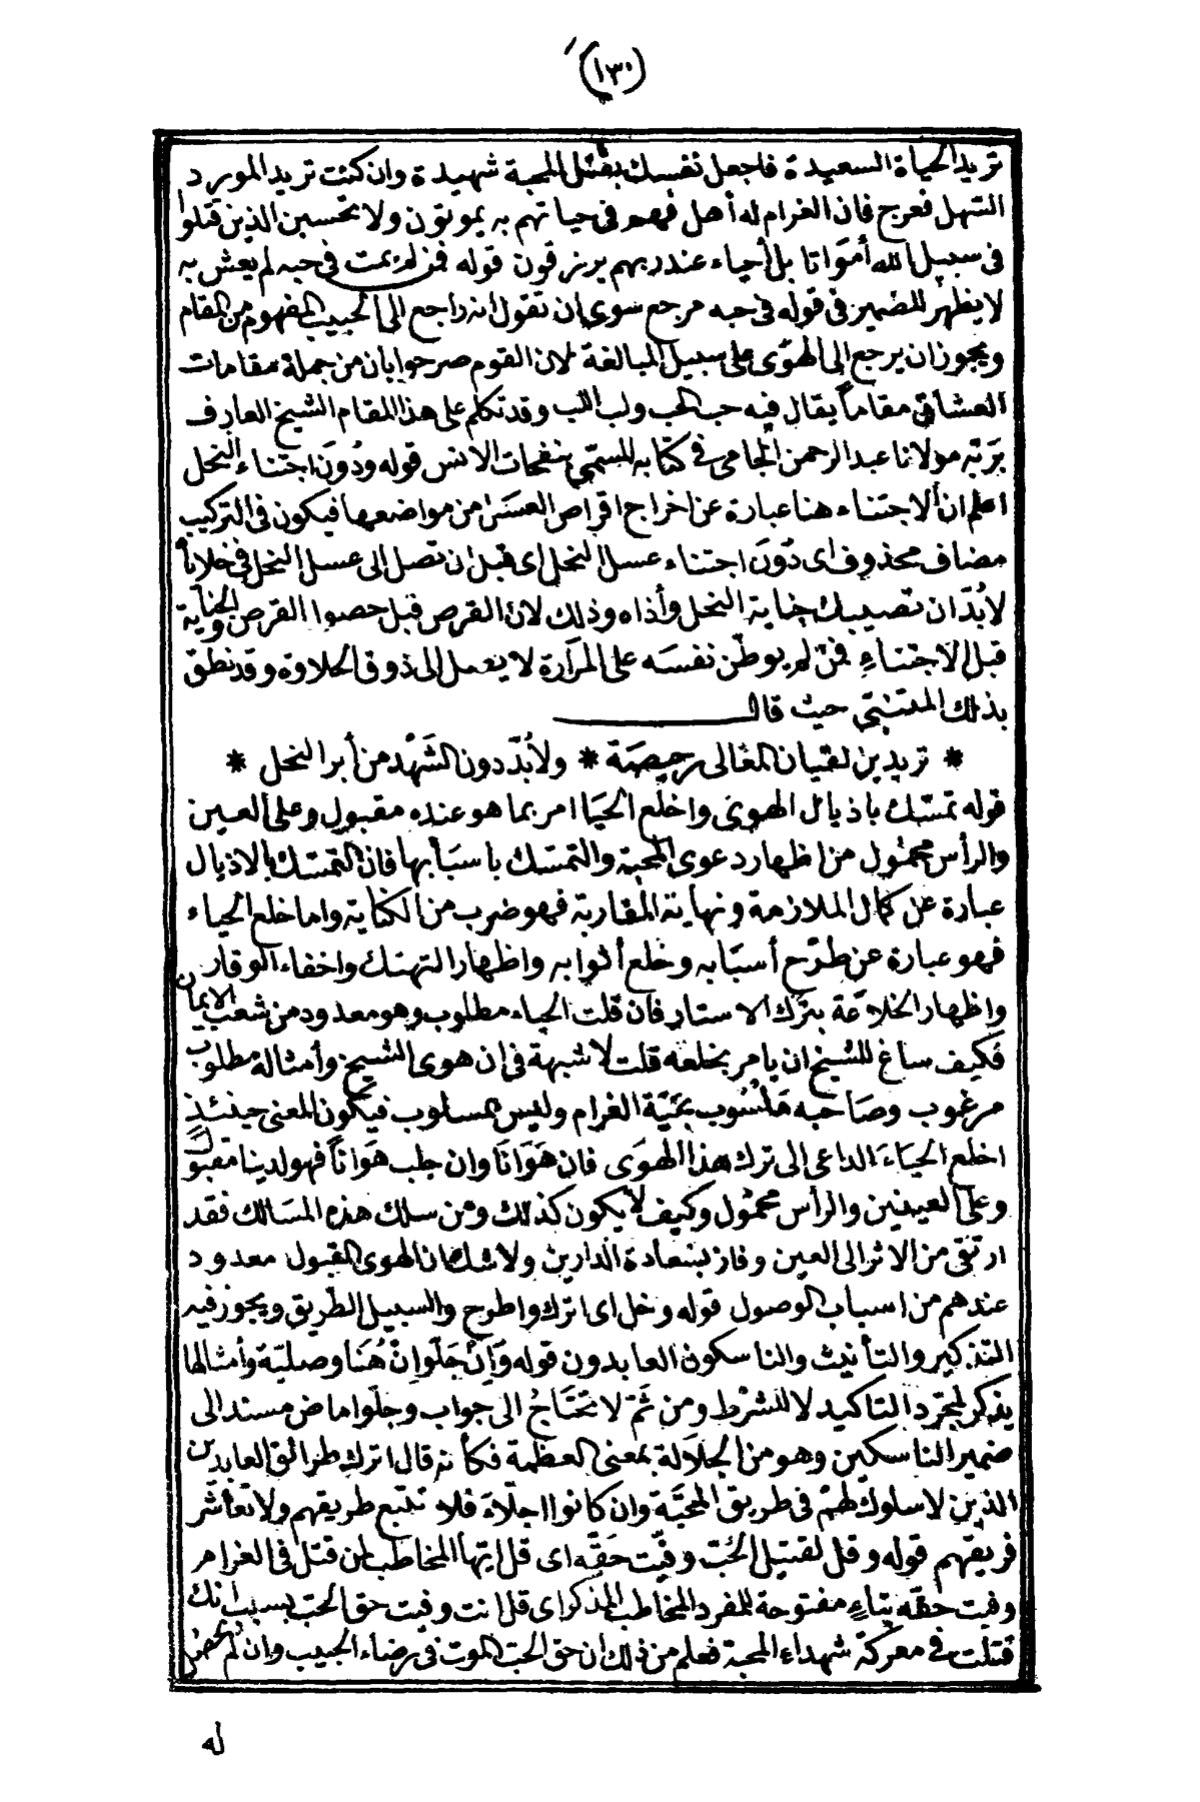 (١٣٠)
تريد الحياة السعيدة فاجعل نفسك بقتل المحبة شهيدة وان كنت تريد المورد
السهل فعرج فان الغرام له أهل فهم فى حياتهم به يموتون ولا تحسبن الذين قتلوا
فى سبيل الله أمواتا بل أحياء عند ربهم يرزقون قوله فمن لم يمت فى حبه لم يعش به
لا يظهر للضمير فى قوله فى حبه مرجع سوى ان تقول انه راجع الى الحبيب المفهوم من المقام
ويجوز ان يرجع الى الهوى على سبيل المبالغة لان القوم صرحوا بان من جملة مقامات
العشاق مقاماً يقال فيه حب الحب ولب اللب وقد تكلم على هذا المقام الشيخ العارف
بربّه مولانا عبد الرحمن الجامى فى كتابه المسمّى بنفحات الانس قوله ودُونَ اجتناء النحل
اعلم ان الاجتناء هنا عبارة عن اخراج اقراص العسَل من مواضعها فيكون فى التركيب
مضاف محذوف اى دُونَ اجتناء عسل النحل اى قبل ان تصل الى عسل النحل فى خلاياً
لابُدّ ان تصيبك جناية النحل وأذاه وذلك لان القرص قبل حصوا القرص والجناية
قبل الاجتناءِ فمن لم يوطّن نفسَه على المرارة لا يعمل الى ذوق الحلاوة وقد نطق
بذلك المتنبّى حيث قال
* تريدين لقيان المعالى رخيصَة * ولابُدّ دون الشَهْد من أبر النحل *
قوله تمسّك باذيال الهوى واخلع الحيَا امر بما هو عنده مقبول وعلى العين
والرأس محمُول من اظهار دعوى المحبة والتمسّك باسبَابها فان التمسّك بالاذيال
عبارة عن كمال الملازمة ونهاية المقاربة فهو ضرب من الكناية واما خلع الحياء
فهو عبارة عن طرْح أسبَابه وخلع أثوابه واظهار التهتك واخفاء الوقار
واظهار الخلاعَة بترك الاستار فان قلت الحياء مطلوب وهو معدود من شعب الايمان
فكيف ساغ للشيخ ان يامر بخلعه قلت لا شبهة فى ان هوى الشيخ وأمثاله مطلوب
مرغوب وصَاحبه مَنْسُوب بحَيّة الغرام وليس بمسلوب فيكون المعنى حينئذٍ
اخلع الحيَاءَ الداعى الى ترك هذا الهوَى فان هَوَانَا وان جلب هَوَاناً فهو لدينا مقبول
وعلى العينين والرأس محمُول وكيف لا يكون كذلك ومن سلك هذه المسَالك فقد
ارتقى من الاثر الى العين وفاز بسَعادة الدارين ولا شك ان الهوى المقبول معدود
عندهم من اسباب الوصول قوله وخل اى اترك واطرح والسبيل الطريق ويجوز فيه
التذكير والتأنيث والناسكون العابدون قوله وَاِنْ جَلّوا اِنْ هُنَا وصليّة وأمثالها
يذكر لمجرّد التاكيد لا للشرْط ومن ثَمّ لا تحتَاجُ الى جواب وجلّوا ماض مسند الى
ضمير الناسكين وهو من الجلاَلة بمعنى العظمة فكأنه قال اترك طرائق العابدين
الذين لا سلوك لهمْ فى طريق المحبَّة وان كانوا اجلّاءَ فلا تتّبع طريقهم ولا تعاشّر
فريقهم قوله وقل لقتيل الحُبّ وفّيت حَقّه اى قل ايّها المخاطب لمن قتل فى الغرام
وفّيت حقّه بتاءٍ مفتوحة للمفرد المخاطب المذكر اى قل انت وفيت حق الحبّ بسبب انك
قتلت فى معركة شهداء المحبة فعلم من ذلك ان حق الحبّ الموت فى رضاء الحبيب وان لم يحصل
له